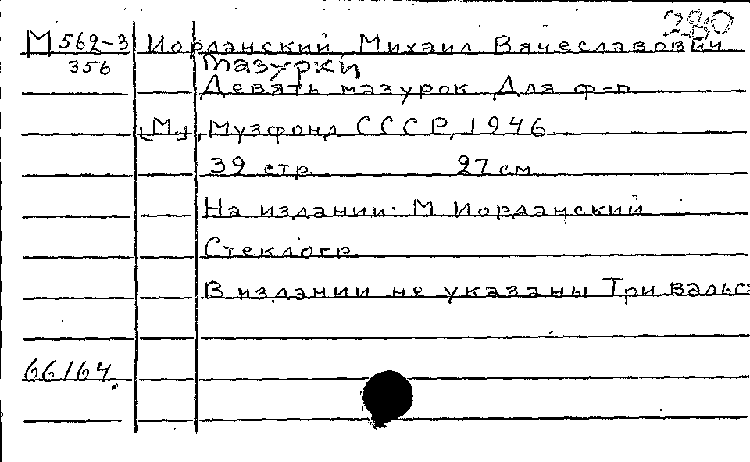 280
М 562-3 Иорданский, Михаил Вячеславович
356 Мазурки
Девять мазурок Для ф-п.
[М.], Музфонд СССР, 1946
39 стр. 27 см.
На издании: М Иорданский
Стеклогр.
В издании не указаны Три вальс
66164.